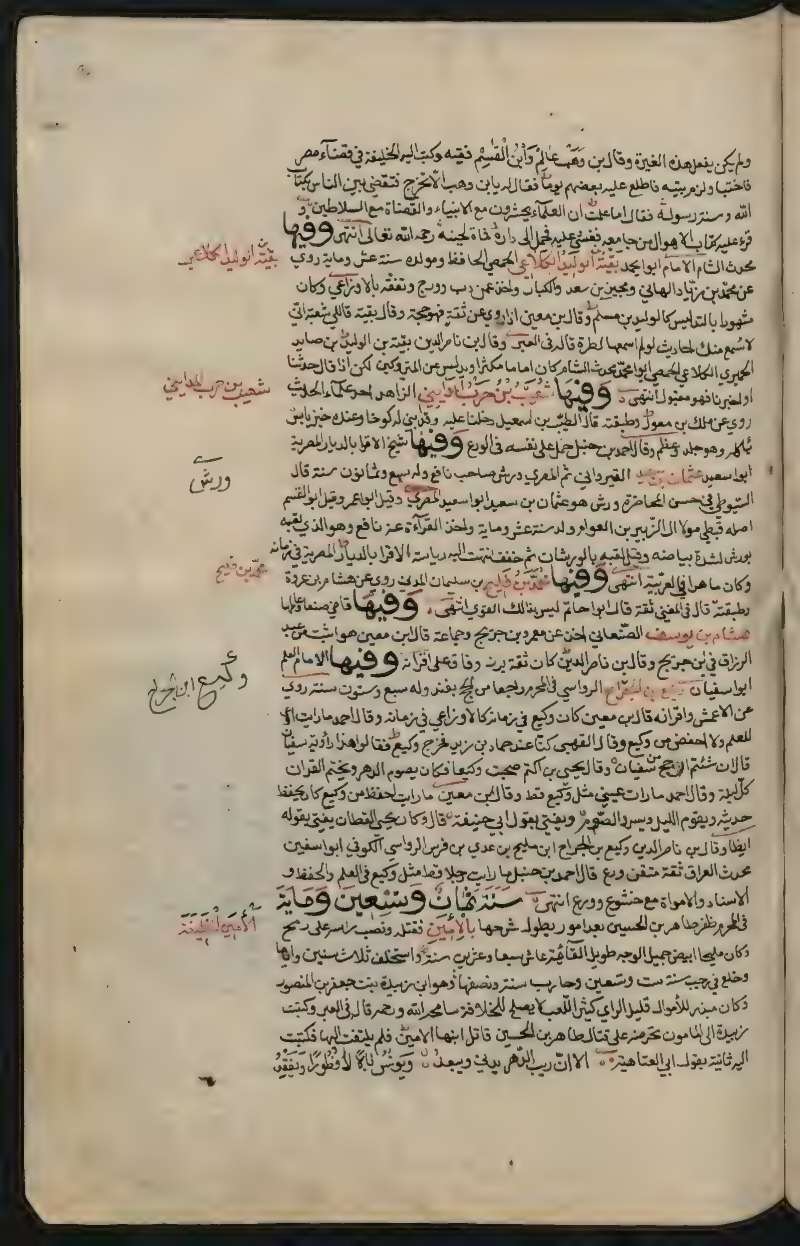 ولم يكن يفعل هذه الغيرة وقال بن وهب عالم وابن القاسم فقيه وكتب اليه الخليفة في قضاء مصر
فاختبا ولزم بيته فاطلع عليه بعضهم يوما فقال له يا بن وهب الا تخرج فتقضي بين الناس بكتاب
الله وسنة رسوله فقال اما علمت ان العلماء يحشرون مع الانبياء والقضاة مع السلاطين و
قرء عليه كتاب الاهوال من جامعه فغشي عليه فحمل الى داره فمات لحينه رحمه الله تعالى انتهى وفيها
محدث الشام الامام ابو يحمد بقية بن الوليد الكلاعي الحمصي الحافظ ومولده سنة عشر وماية روى
عن محمد بن زياد الهاني وبحير بن سعد والكبار واخذ عمن دب ودرج وتفقه بالاوزاعي وكان
مشهورا بالتدليس كالوليد بن مسلم وقال بن معين اذا روى عن ثقة فهو حجة وقال بقية قال لي شعبة اني
لاسمع منك احاديث لو لم اسمعها لطرت قاله في العبر وقال بن ناصر الدين بقية بن الوليد بن صايد
الحميري الكلاعي الحمصي ابو محمد محدث الشام كان اماما مكثرا يدلس عن المتروكين لكن اذا قال حدثنا
او اخبرنا فهو مقبول انتهى وفيها شعيب بن حرب المدايني الزاهد احد علماء الحديث
روى عن ملك بن مغول وطبقته قال الطيب بن اسمعيل دخلنا عليه وقد بنى له كوخا وعنده خبز يابس
ياكله وهو جلد وعظم وقال احمد بن حنبل حمل على نفسه في الورع وفيها شيخ الاقرا بالديار المصرية
ابو سعيد عثمان بن سعيد القيرواني ثم المصري ورش صاحب نافع وله سبع وثمانون سنة قال
السيوطي في حسن المحاضرة ورش هو عثمان بن سعيد ابو سعيد المصري وقيل ابو عمر وقيل ابو القسم
اصله قبطي مولى ال الزبير بن العوام ولد سنة عشر وماية واخذ القراءة عن نافع وهو الذي لقبه
بورش لشدة بياضه وقيل لقبه بالورشان ثم خفف انتهت اليه رياسة الاقرا بالديار المصرية في زمانه
وكان ماهرا في العربية انتهى وفيها محمد بن فليح بن سليمان المدني روى عن هشام بن عروة
وطبقته قال في المغني ثقة قال ابو حاتم ليس بذاك القوي انتهى وفيها قاضي صنعا وعالمها
هشام بن يوسف الصنعاني اخذ عن معمر وبن جريج وجماعة قال بن معين هو اثبت من عبد
الرزاق في ابن جريج وقال بن ناصر الدين كان ثقة برز وفاق على اقرانه وفيها الامام العلم
ابو سفيان وكيع بن الجراح الرواسي في المحرم راجعا من الحج بفيد وله سبع وستون سنة روى
عن الاعمش واقرانه قال بن معين كان وكيع في زمانه كالاوزاعي في زمانه وقال احمد ما رايت اوعى
للعلم ولا احفظ من وكيع وقال القعنبي كنا عند حماد بن زيد فخرج وكيع فقالوا هذا راوية سفيان
قال ان شئتم ارجح من سفيان وقال يحيى بن اكثم صحبت وكيعا فكان يصوم الدهر ويختم القران
كل ليلة وقال احمد ما رات عيني مثل وكيع قط وقال ابن معين ما رايت احفظ من وكيع كان يحفظ
حديثه ويقوم الليل ويسرد الصوم ويفتي بقول ابي حنيفة قال وكان يحيى القطان يفتي بقوله
ايضا وقال بن ناصر الدين وكيع بن الجراح ابن مليح بن عدي بن فرس الرواسي الكوفي ابو سفين
محدث العراق ثقة متقن ورع قال احمد بن حنبل ما رايت رجلا قط مثل وكيع في العلم والحفظ و
الاسناد والابواب مع خشوع وورع انتهى سنة ثمان وتسعين وماية
في المحرم ظفر طاهر بن الحسين بعد امور يطول شرحها بالامين فقتله ونصب راسه على رمح
وكان مليحا ابيض جميل الوجه طويل القامة عاش سبعا وعشرين سنة واستخلف ثلاث سنين واياما
وخلع في رجب سنة ست وتسعين وحارب سنة ونصفها وهو ابن زبيدة بنت جعفر بن المنصور
وكان مبذر للأموال قليل الراي كثير اللعب لا يصلح للخلافة سامحه الله ورحمه قاله في العبر وكتبت
زبيدة الى المامون تحرضه على قتال طاهر بن الحسين قاتل ابنها الامين فلم يلتفت اليها فكتبت
اليه ثانية بقول ابي العتاهية الا ان ريب الدهر يدني ويبعد ويونس
بقية بن الوليد الكلاعي
شعيب بن حرب المدايني
ورش
محمد بن فليح
وكيع ابن الجراح
الأمين الخليفة